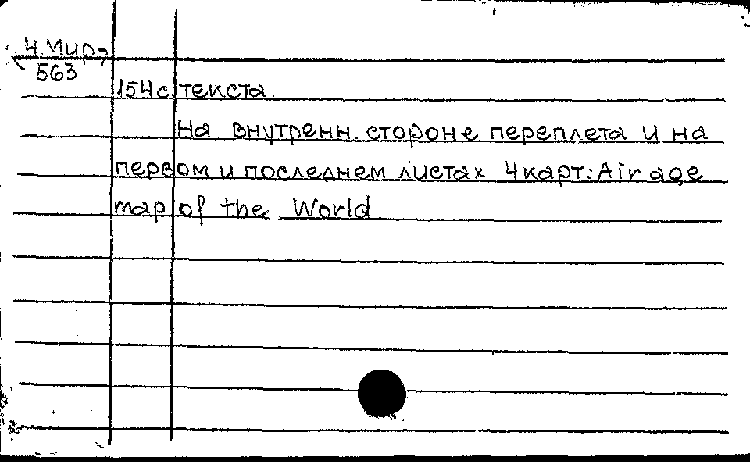 Ч.Мир,
563
154с текста.
На внутренн. стороне переплета и на
первом и последнем листах 4 карт: Air age
map of the World